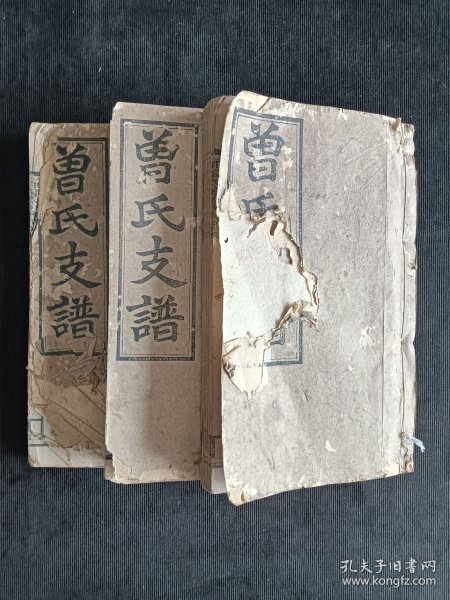 曾氏支譜
曾氏支譜
曾氏
孔夫子旧书网
www.kongfz.com